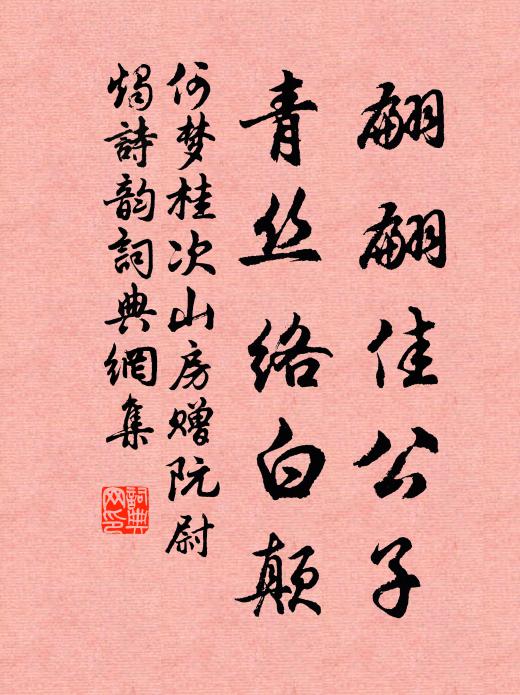 翩翩佳公子
青丝络白颠
何梦桂次山房赠阮尉
烛詩韵詞典網集
詞典网印